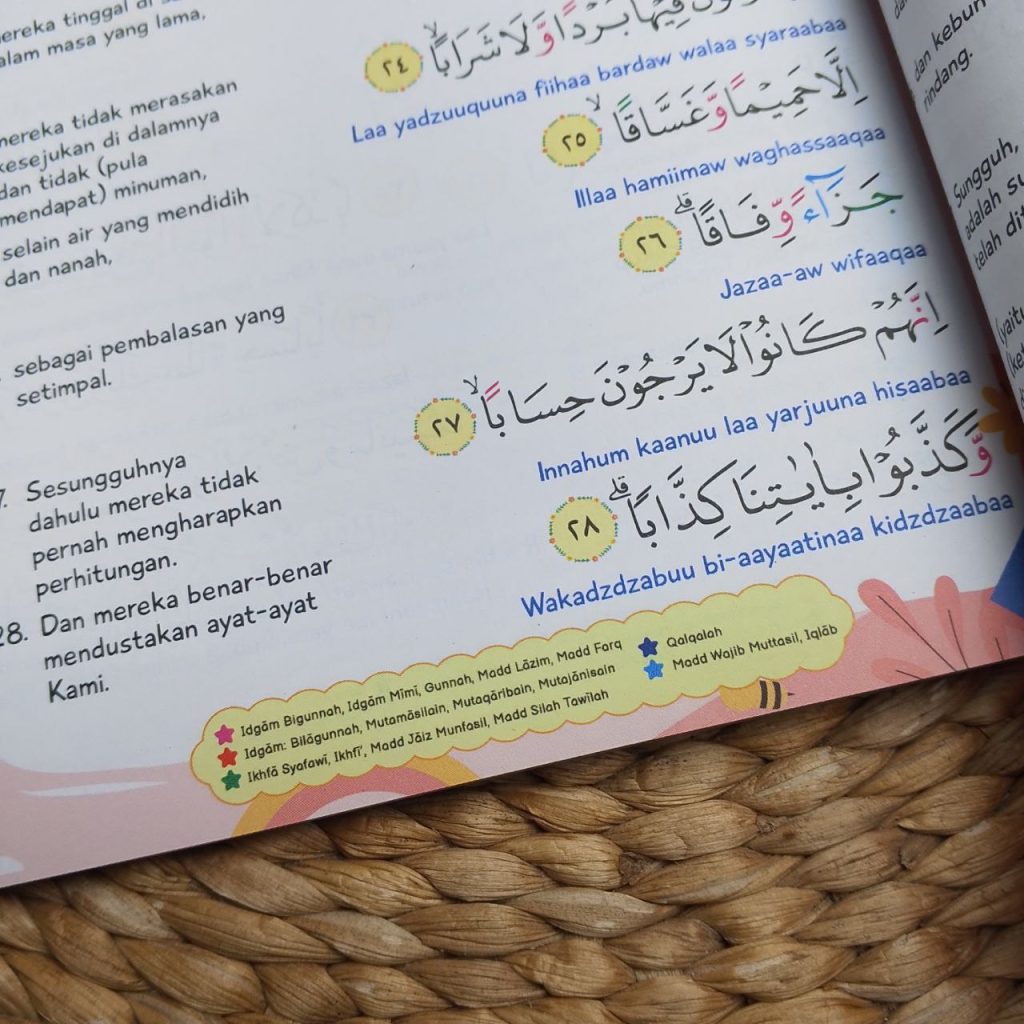 tinggal di
alam masa yang lama,
mereka tidak merasakan
kesejukan di dalamnya
dan tidak (pula
mendapat) minuman,
selain air yang mendidih
dan nanah,
sebagai pembalasan yang
setimpal.
7. Sesungguhnya
dahulu mereka tidak
pernah mengharapkan
perhitungan.
28. Dan mereka benar-benar
mendustakan ayat-ayat
Kami.
فِيْهَا بَرْدًا وَّلَا شَرَابًاۙ ٢٤
Laa yadzuuquuna fiihaa bardaw walaa syaraabaa
اِلَّا حَمِيْمًا وَّغَسَّاقًاۙ ٢٥
Illaa hamiimaw waghassaaqaa
جَزَاۤءً وِّفَاقًاۗ ٢٦
Jazaa-aw wifaaqaa
اِنَّهُمْ كَانُوْا لَا يَرْجُوْنَ حِسَابًاۙ ٢٧
Innahum kaanuu laa yarjuuna hisaabaa
وَّكَذَّبُوْا بِاٰيٰتِنَا كِذَّابًاۗ ٢٨
Wakadzdzabuu bi-aayaatinaa kidzdzaabaa
Idgām Bigunnah, Idgām Mīmī, Gunnah, Madd Lāzim, Madd Farq
Idgām: Bilāgunnah, Mutamāsilain, Mutaqāribain, Mutajānisain
Ikhfā Syafawī, Ikhfī', Madd Jāiz Munfasil, Madd Silah Tawīlah
Qalqalah
Madd Wajib Muttasil, Iqlāb
dan kebun
rindang.
Sungguh,
adalah
telah